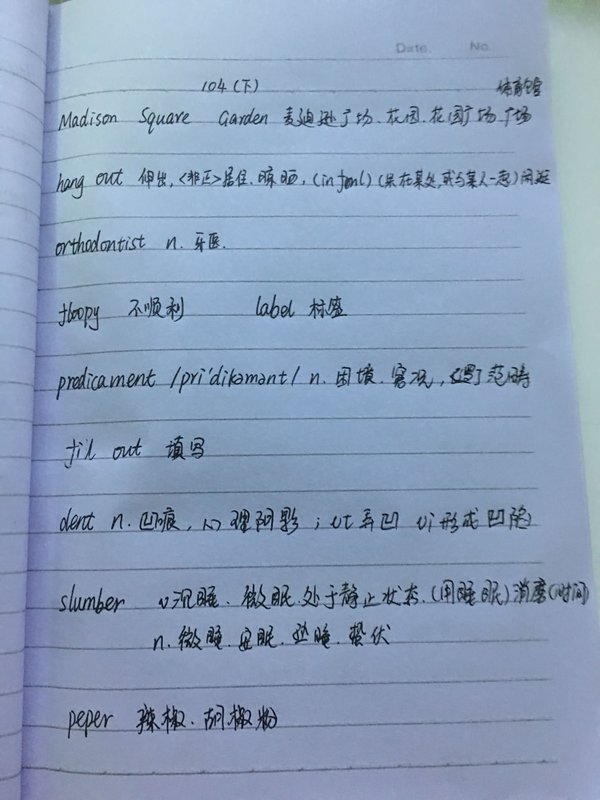 Date. No.
104(下) 体育馆
Madison Square Garden 麦迪逊广场、花园、花园广场、广场
hang out 伸出,<非正>居住、晾晒,(infml)(呆在某处,或与某人一起)闲逛
orthodontist n. 牙医.
floopy 不顺利 label 标签
predicament /pri'dikəmənt/ n. 困境.窘况, 范畴
fil out 填写
dent n. 凹痕,心理阴影;vt弄凹 vi形成凹陷
slumber v沉睡、微眠.处于静止状态.(用睡眠)消磨(时间)
n.微睡.安眠. 蛰伏
peper 辣椒.胡椒粉